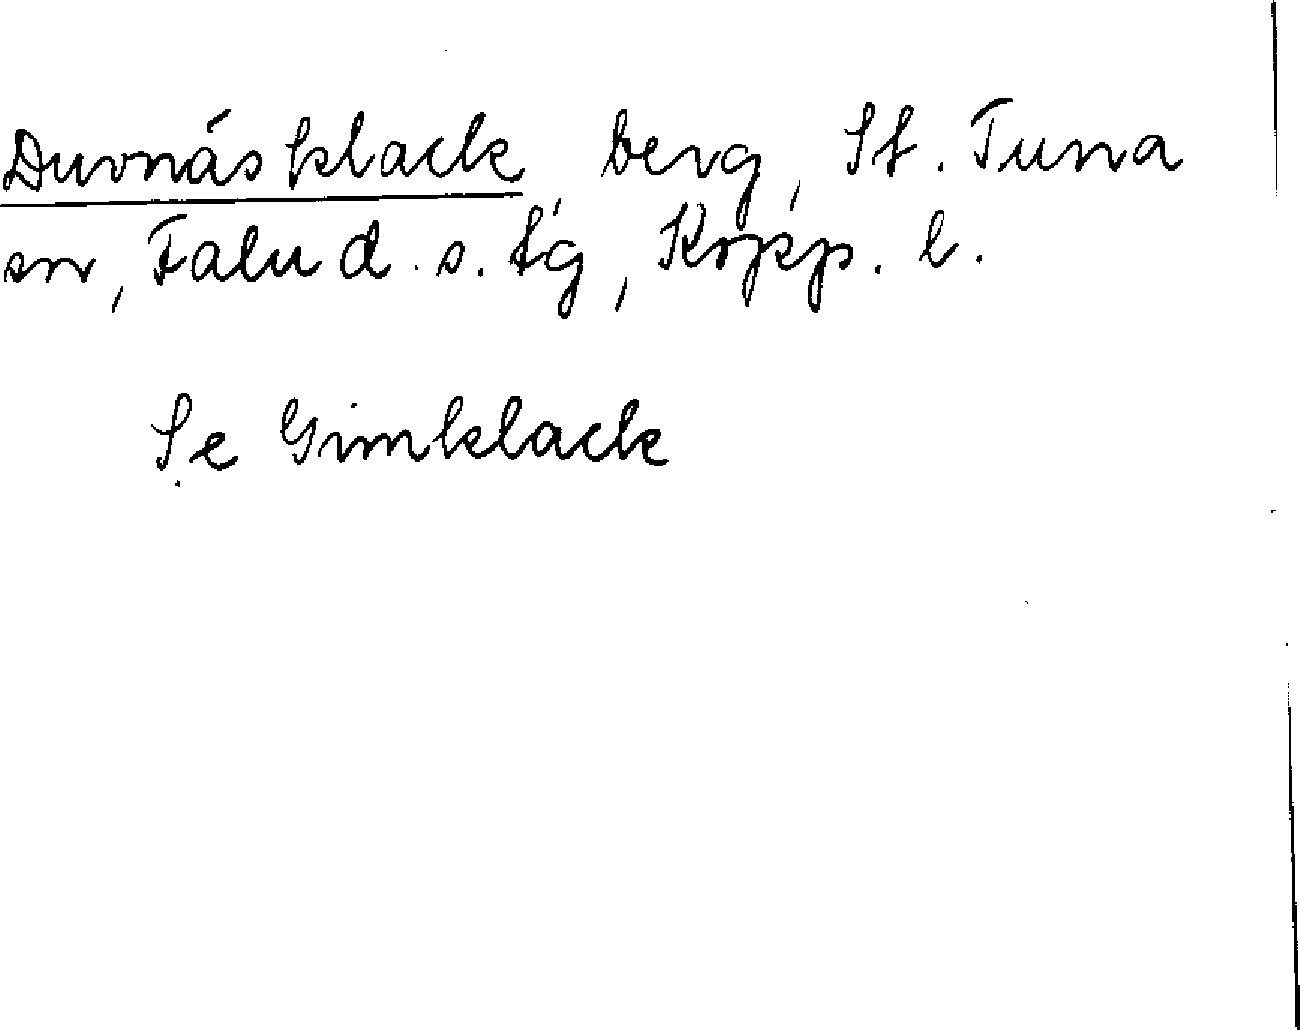 Duvnäsklack, berg, St. Tuna
sn, Falu d. s. tg, Kopp. l.
Se Gimklack